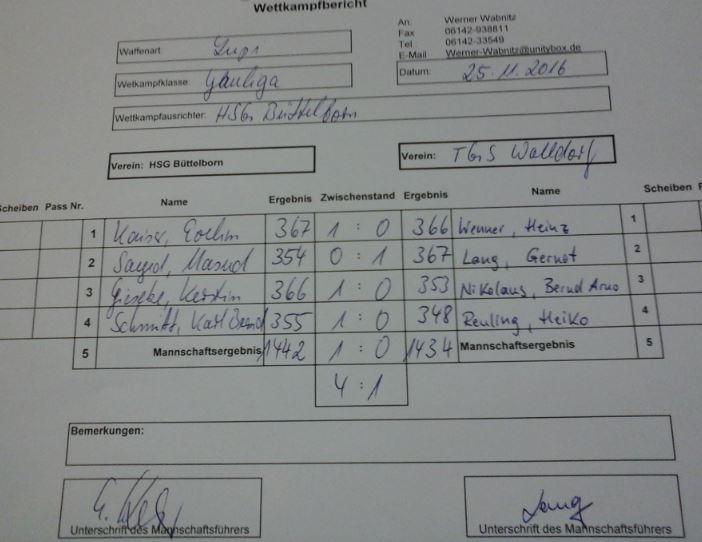 Wettkampfbericht
An: Werner Wabnitz
Fax 06142-938811
Tel 06142-33549
E-Mail Werner-Wabnitz@unitybox.de
Waffenart: Lupi
Wetkampfklasse: Gauliga
Datum: 25.11.2016
Wettkampfausrichter: HSG Büttelborn
Verein: HSG Büttelborn
Verein: TGS Walldorf
Scheiben Pass Nr. Name Ergebnis Zwischenstand Ergebnis Name Scheiben
1 Kaiser, 367 1 : 0 366 Wenner, Heinz 1
2 Sayed, Masud 354 0 : 1 367 Lang, Gernot 2
3 Gieseke, Kerstin 366 1 : 0 353 Nikolaus, Bernd Arno 3
4 Schmitt, Karl 355 1 : 0 348 Reuling, Heiko 4
5 Mannschaftsergebnis 1442 1 : 0 1434 Mannschaftsergebnis 5
4 : 1
Bemerkungen:
Unterschrift des Mannschaftsführers
Lang
Unterschrift des Mannschaftsführers